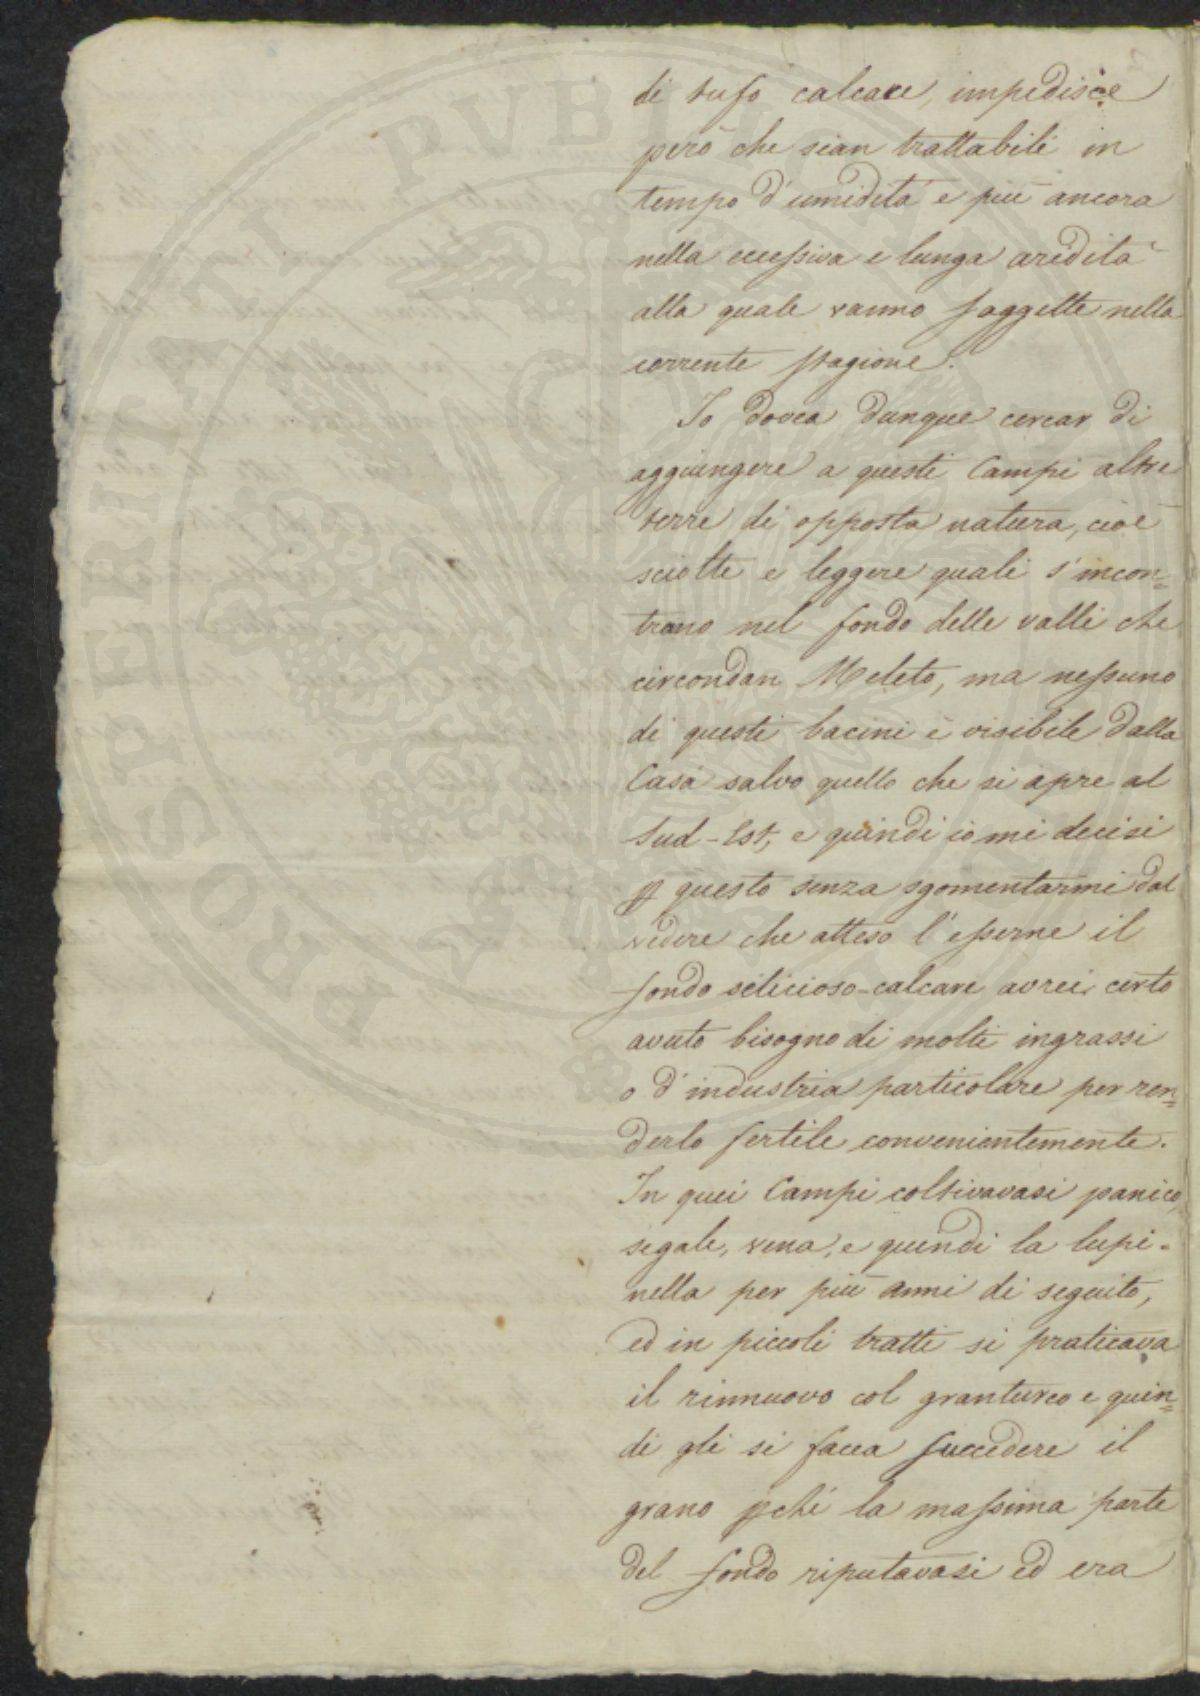 di tufo calcare, impedisce
però che sian trattabili in
tempo d'umidità e più ancora
nella eccessiva e lunga aredità
alla quale vanno soggette nella
corrente stagione.
Io dovea dunque cercar di
aggiungere a questi Campi altre
terre di opposta natura, cioè
sciolte e leggere quali s'incon=
trano nel fondo delle valli che
circondan Meleto, ma nessuno
di questi bacini è visibile dalla
Casa salvo quello che si apre al
Sud-Est, e quindi io mi decisi
p questo senza sgomentarmi dal
vedere che atteso l'esserne il
fondo silicioso-calcare avrei certo
avuto bisogno di molti ingrassi
o d'industria particolare per ren=
derlo fertile convenientemente.
In quei Campi coltivavasi panico,
segale, vena, e quindi la lupi=
nella per più anni di seguito,
ed in piccoli tratti si praticava
il rinnuovo col granturco e quin=
di gli si facea succedere il
grano pchè la massima parte
del fondo riputavasi ed era
PROSPERITATI PVBLICAE